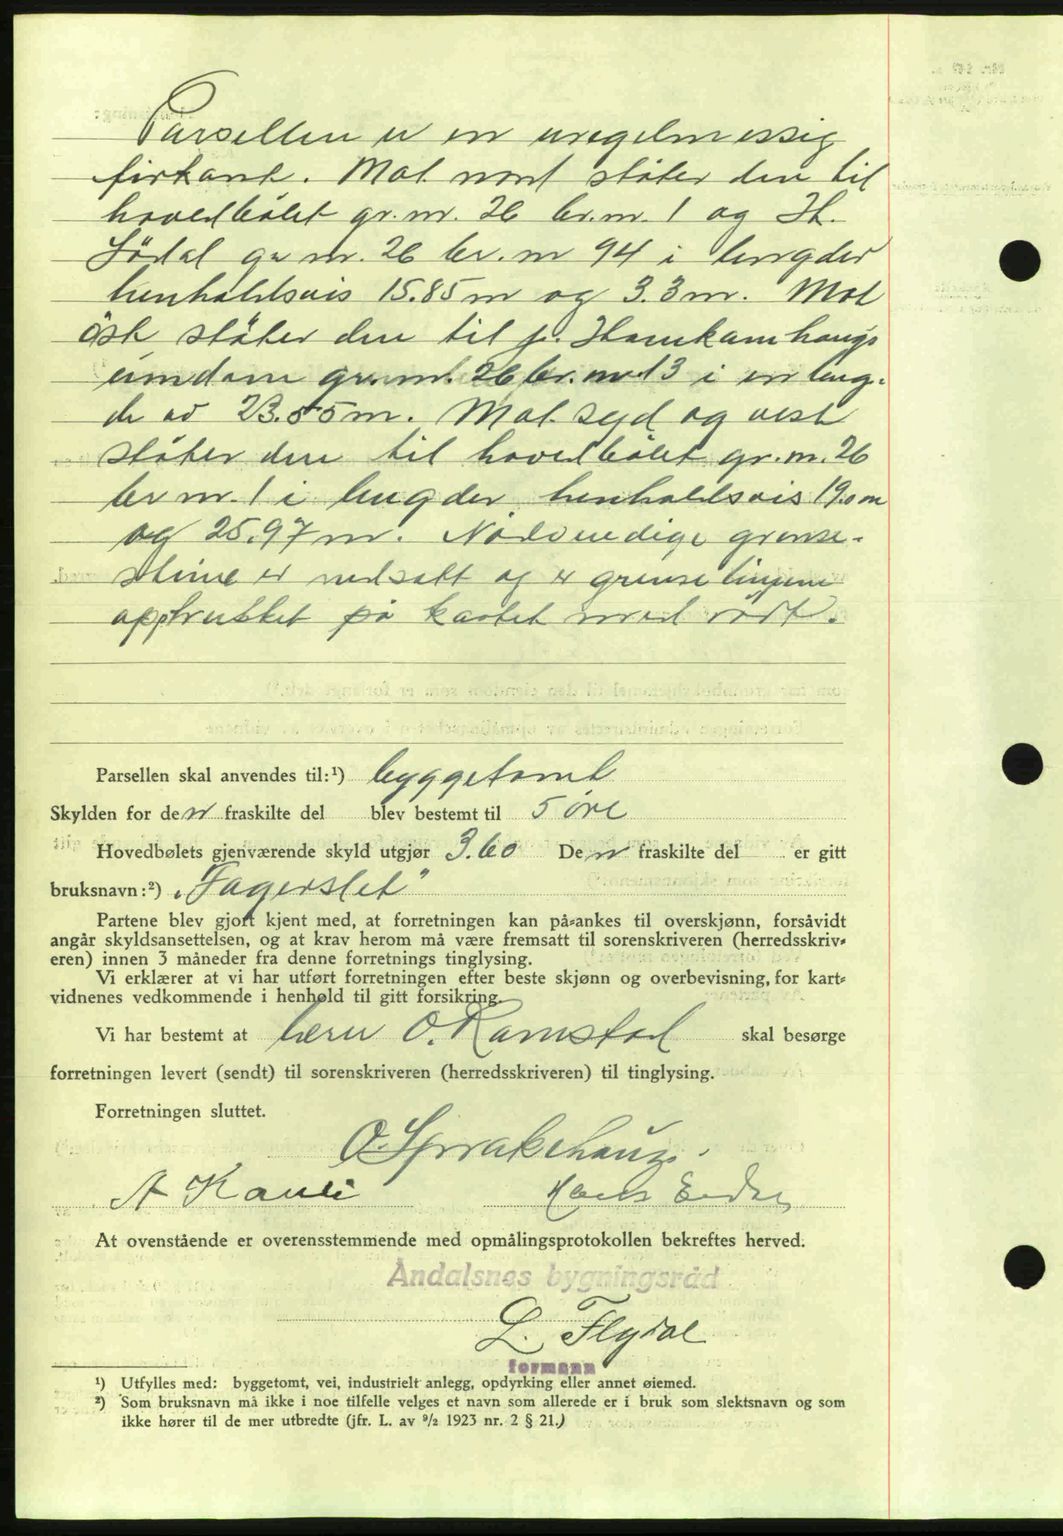 Parsellen er en uregelmessig
firkant. Mot nord støter den til
hovedbølet gr. nr. 26 br. nr. 1 og H.
Sødal gr nr. 26 br. nr 94 i lengder
henholdsvis 15.85 m og 3.3 m. Mot
øst støter den til J. Hamkamhaugs
eiendom gr. nr. 26 br. nr 13 i en leng-
de av 23.55 m. Mot syd og vest
støter den til hovedbølet gr. nr. 26
br nr. 1 i lengder henholdsvis 19.0 m
og 25.97 m. Nødvendige grense-
stene er nedsatt og er grenselinjene
opptrukket på kartet med rødt.
Parsellen skal anvendes til:¹) byggetomt
Skylden for den fraskilte del blev bestemt til 5 øre
Hovedbølets gjenværende skyld utgjør 3.60 Den fraskilte del er gitt
bruksnavn:²) „Fagerslet"
Partene blev gjort kjent med, at forretningen kan på-ankes til overskjønn, forsåvidt
angår skyldsansettelsen, og at krav herom må være fremsatt til sorenskriveren (herredsskriv-
eren) innen 3 måneder fra denne forretnings tinglysing.
Vi erklærer at vi har utført forretningen efter beste skjønn og overbevisning, for kart-
vidnenes vedkommende i henhold til gitt forsikring.
Vi har bestemt at herr O. Ramstad skal besørge
forretningen levert (sendt) til sorenskriveren (herredsskriveren) til tinglysing.
Forretningen sluttet.
O. Sprakehaug.
A Kavli Hans
At ovenstående er overensstemmende med opmålingsprotokollen bekreftes herved.
Åndalsnes bygningsråd
L. Flydal
formann
¹) Utfylles med: byggetomt, vei, industrielt anlegg, opdyrking eller annet øiemed.
²) Som bruksnavn må ikke i noe tilfelle velges et navn som allerede er i bruk som slektsnavn og som
ikke hører til de mer utbredte (jfr. L. av ⁹/₂ 1923 nr. 2 § 21.)